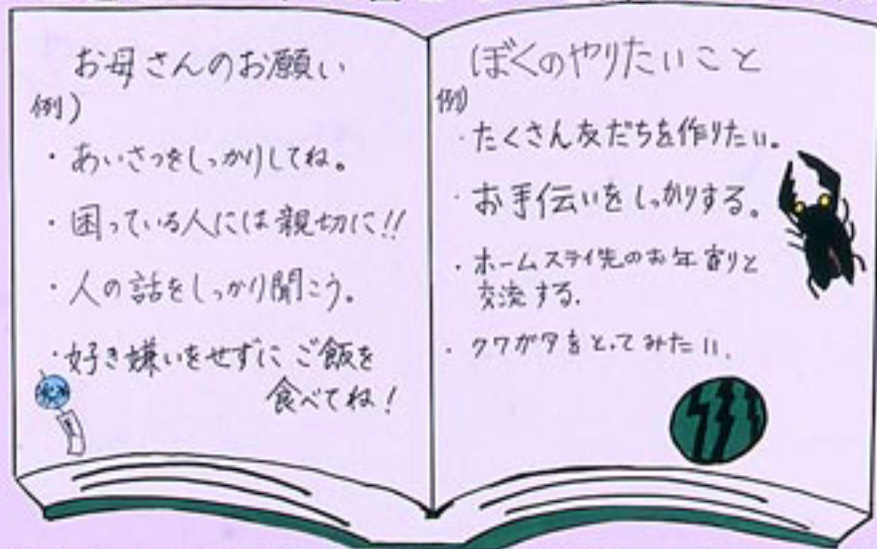 お母さんのお願い
例)
・あいさつをしっかりしてね。
・困っている人には親切に!!
・人の話をしっかり聞こう。
・好き嫌いをせずにご飯を
食べてね!
ぼくのやりたいこと
例)
・たくさん友だちを作りたい。
・お手伝いをしっかりする。
・ホームステイ先のお年寄りと
交流する.
・クワガタをとってみたい.